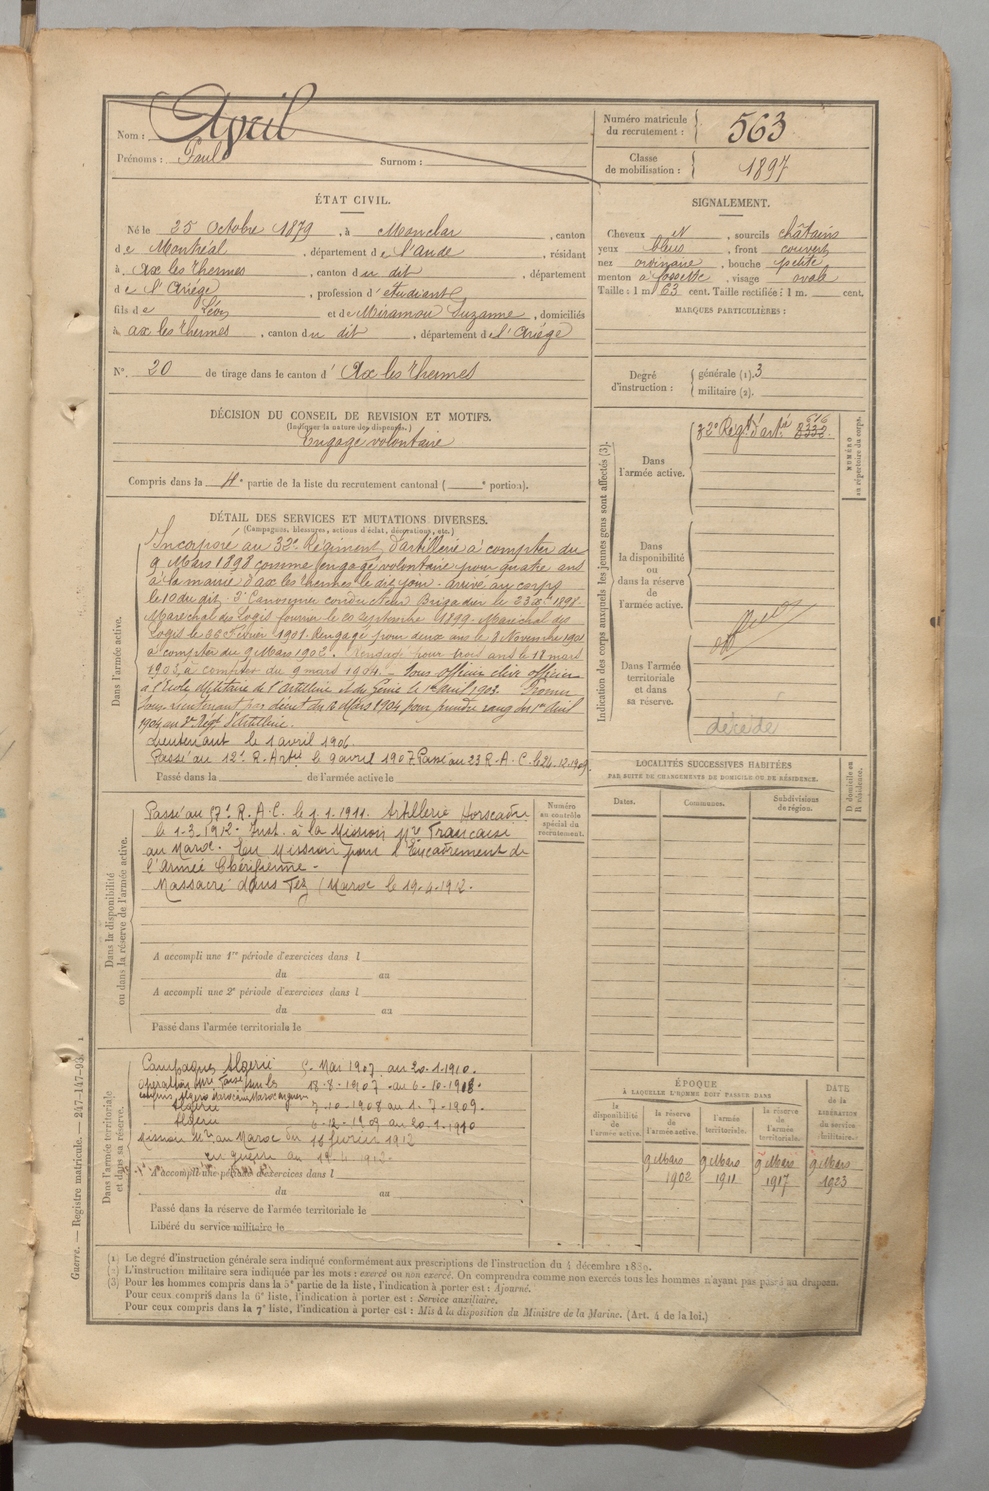 Nom : April
Prénoms : Paul Surnom :
Numéro matricule du recrutement : 563
Classe de mobilisation : 1897
ÉTAT CIVIL.
Né le 25 Octobre 1879, à Monclar, canton
de Montréal, département de l'Aude, résidant
à Ax les Thermes, canton du dit, département
de l'Ariège, profession d'étudiant,
fils de Léon et de Miramon Suzanne, domiciliés
à ax les Thermes, canton du dit, département de l'Ariège
N°. 20 de tirage dans le canton d' Ax les Thermes
SIGNALEMENT.
Cheveux N, sourcils châtains
yeux bleus, front couvert,
nez ordinaire, bouche petite,
menton à fossette, visage ovale
Taille : 1 m. 63 cent. Taille rectifiée : 1 m. cent.
MARQUES PARTICULIÈRES :
Degré d'instruction : générale (1). 3
militaire (2).
DÉCISION DU CONSEIL DE REVISION ET MOTIFS.
(Indiquer la nature des dispenses.)
Engagé volontaire
Compris dans la 4e partie de la liste du recrutement cantonal ( e portion).
DÉTAIL DES SERVICES ET MUTATIONS DIVERSES.
(Campagnes, blessures, actions d'éclat, décorations, etc.)
Dans l'armée active.
Incorporé au 32e Régiment d'artillerie à compter du
9 Mars 1898 comme engagé volontaire pour quatre ans
à la mairie d'ax les thermes le dit jour - arrivé au corps
le 10 du dit. 2e Canonnier conducteur Brigadier le 23 1898.
Maréchal des logis fourrier le 20 septembre 1899. Maréchal des
Logis le 26 Février 1901. Rengagé pour deux ans le 2 Novembre 1901
à compter du 9 Mars 1902. Rengagé pour trois ans le 18 mars
1903, à compter du 9 mars 1904. Sous officier élève officier
à l'Ecole Militaire de l'artillerie et du génie le 1er avril 1903. Promu
sous lieutenant par décret du Mars 1904 pour prendre rang du 1er Avril
1904 au Régt d'Artillerie.
Lieutenant le 1 avril 1906.
Passé au 12e R. Artie le 9 avril 1907 Passé au 23 R.A.C. le 24-12-1909.
Passé dans la de l'armée active le
Dans la disponibilité ou dans la réserve de l'armée active.
Passé au R.A.C. le 1.1.1911. Artillerie Hors cadre
le 1-3-1912. Inst. à la Mission Mre Française
au Maroc. En Mission pour l'Encadrement de
l'Armée Chérifienne -
Massacré dans Fez (Maroc le 19-4-1912.
A accompli une 1re période d'exercices dans l
du au
A accompli une 2e période d'exercices dans l
du au
Passé dans l'armée territoriale le
Numéro au contrôle spécial du recrutement.
Dans l'armée territoriale et dans sa réserve.
Campagnes Algérie 5 Mai 1907 au 20-1-1910.
opérations sur les 18-8-1907 - au 6-10-1908.
Algérie 7-10-1908 au 1-7-1909.
Algérie 6-12-1909 au 20-1-1910
Mission Mre au Maroc du 16 février 1912
en guerre au 19-4-1912-
A accompli une période d'exercices dans l
du au
Passé dans la réserve de l'armée territoriale le
Libéré du service militaire le
Indication des corps auxquels les jeunes gens sont affectés (3).
Dans l'armée active.
32e Régt d'artie 616 2332
NUMÉRO au répertoire du corps.
Dans la disponibilité ou dans la réserve de l'armée active.
Dans l'armée territoriale et dans sa réserve.
décédé
LOCALITÉS SUCCESSIVES HABITÉES
PAR SUITE DE CHANGEMENTS DE DOMICILE OU DE RÉSIDENCE.
Dates. Communes. Subdivisions de région.
D domicile ou R résidence.
ÉPOQUE
À LAQUELLE L'HOMME DOIT PASSER DANS
la disponibilité de l'armée active.
la réserve de l'armée active.
l'armée territoriale.
la réserve de l'armée territoriale.
DATE de la LIBÉRATION du service militaire.
9 Mars 9 Mars 9 Mars 9 Mars
1902 1911 1917 1923
(1) Le degré d'instruction générale sera indiqué conformément aux prescriptions de l'instruction du 4 décembre 1889.
(2) L'instruction militaire sera indiquée par les mots : exercé ou non exercé. On comprendra comme non exercés tous les hommes n'ayant pas passé au drapeau.
(3) Pour les hommes compris dans la 5e partie de la liste, l'indication à porter est : Ajourné.
Pour ceux compris dans la 6e liste, l'indication à porter est : Service auxiliaire.
Pour ceux compris dans la 7e liste, l'indication à porter est : Mis à la disposition du Ministre de la Marine. (Art. 4 de la loi.)
Guerre. — Registre matricule. — 247-147-93.